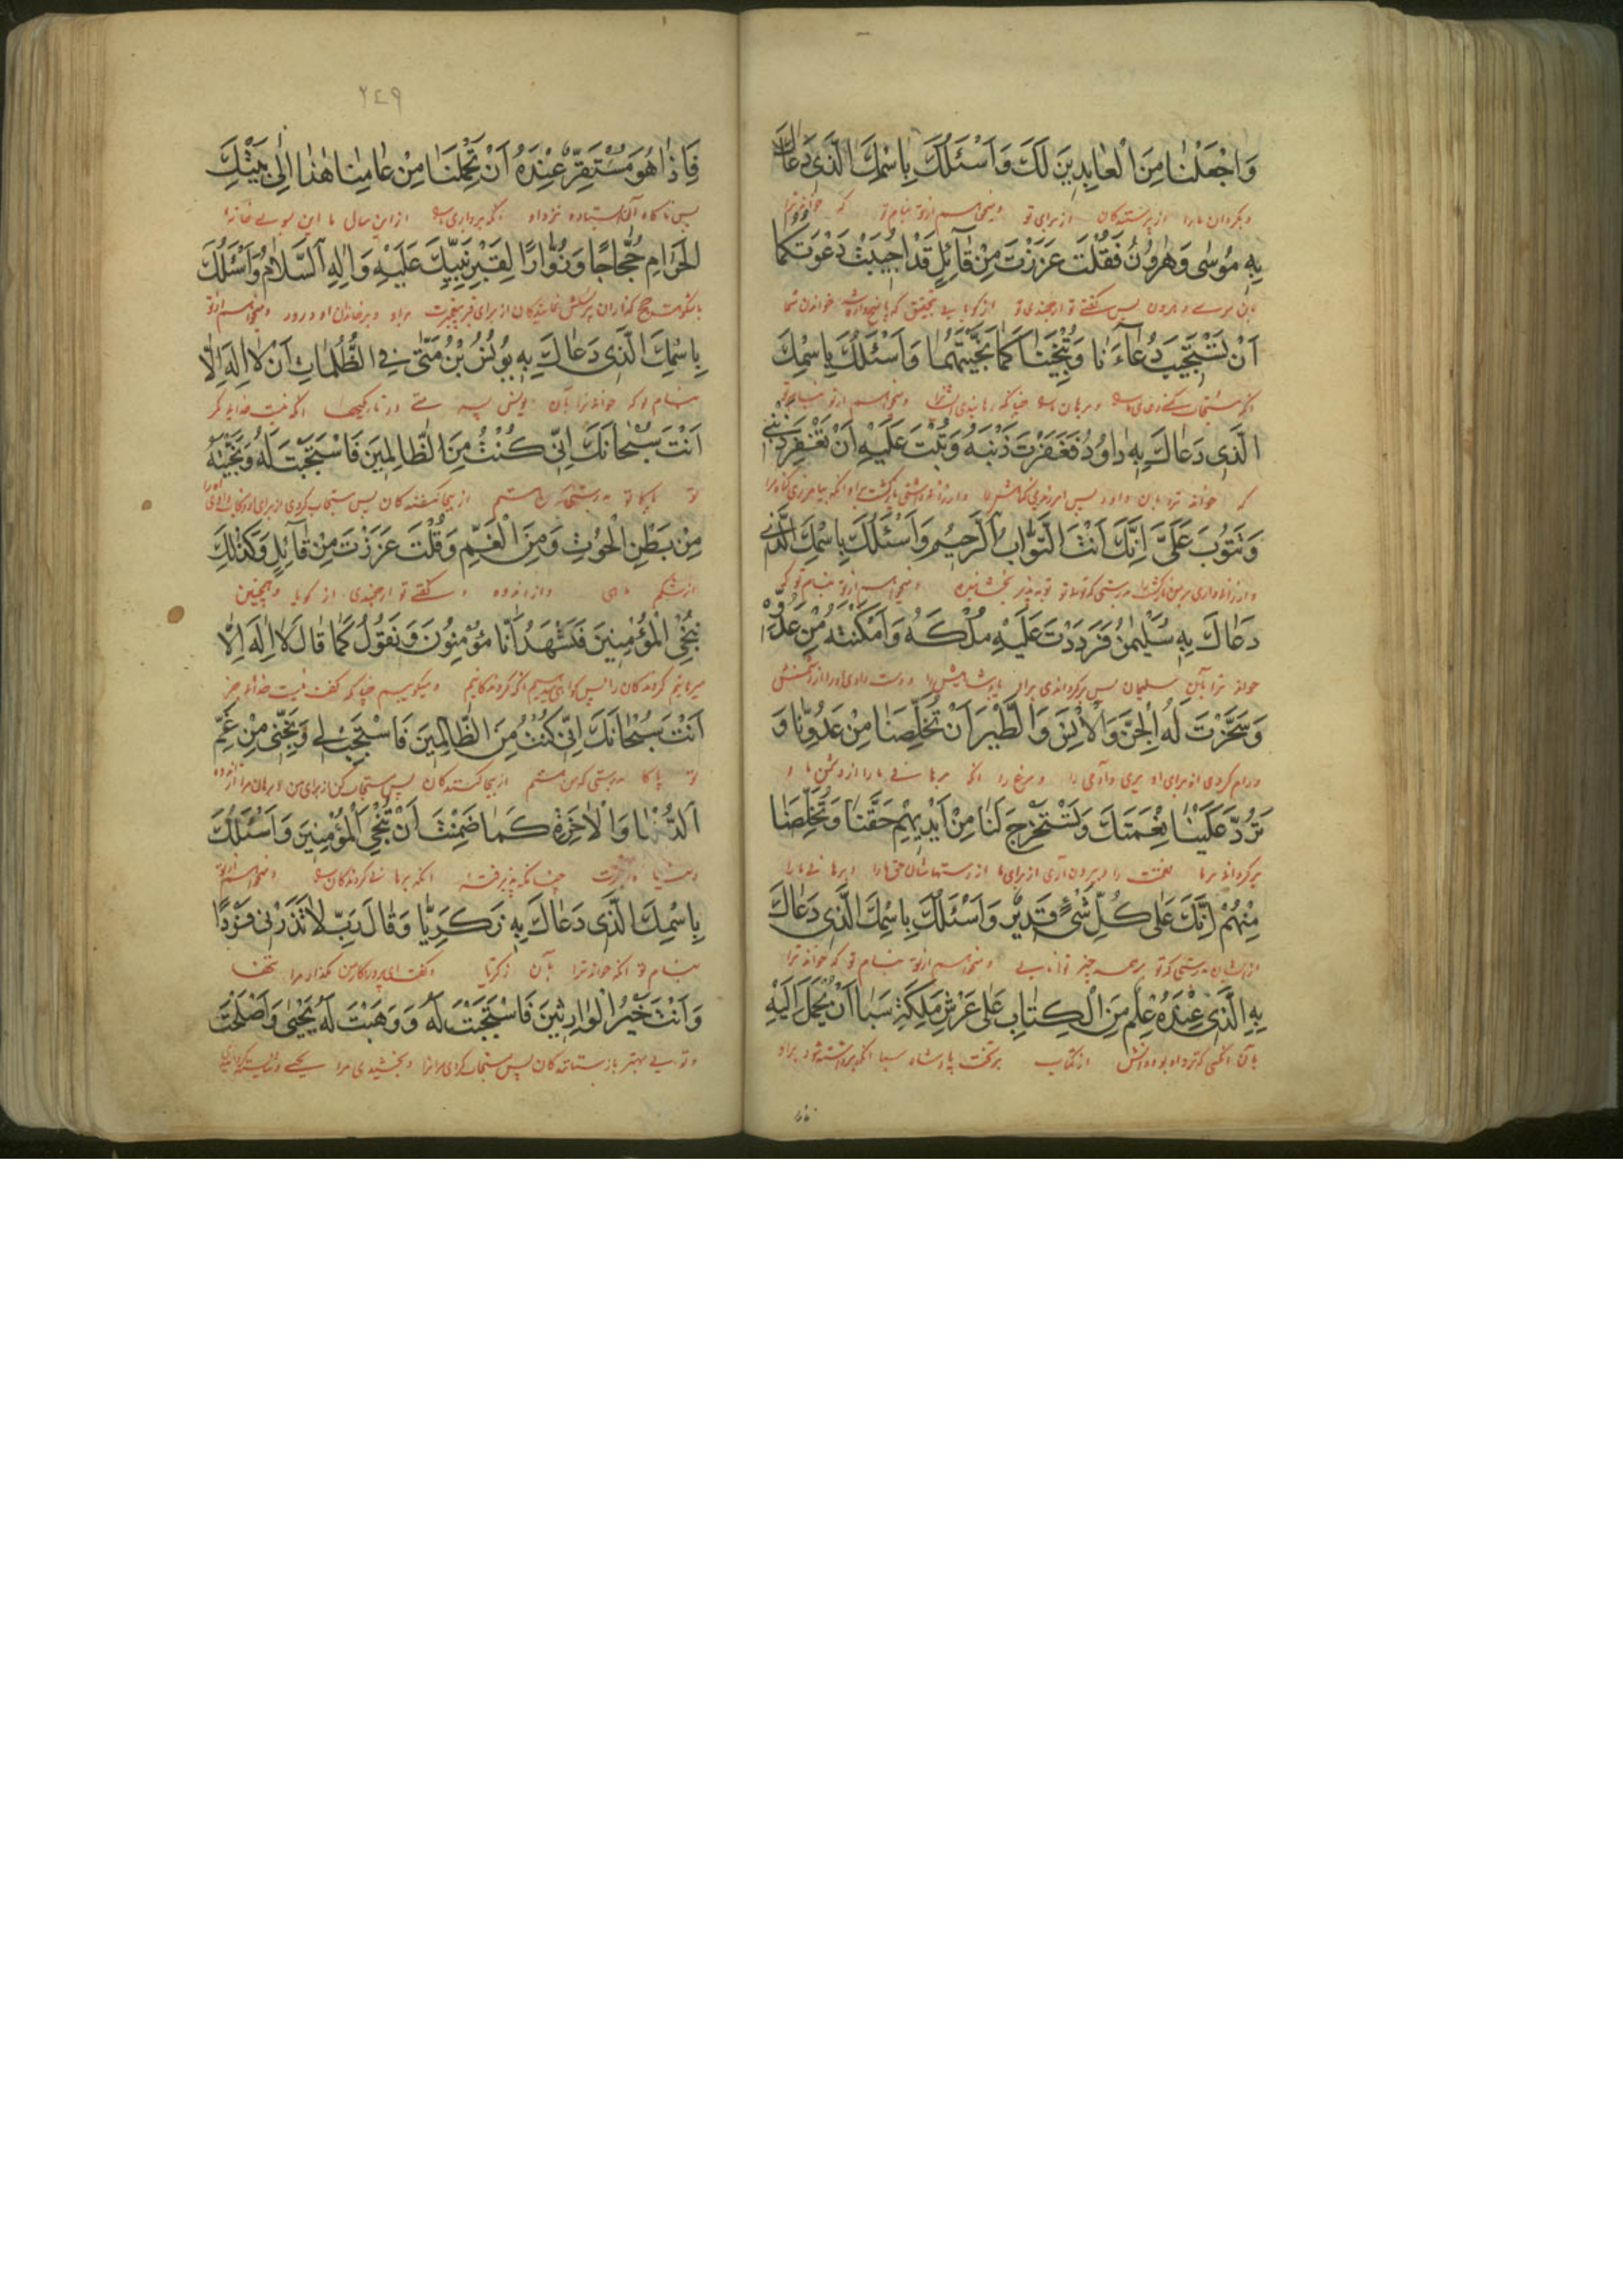 وَاجْعَلْنٰا مِنَ الْعٰابِدِينَ لَكَ وَاَسْئَلُكَ بِاسْمِكَ الَّذِى دَعٰاكَ
و بگردان ما را از پرستندگان از برای تو و میخواهم از تو بنام تو که خواند ترا
بِهِ مُوسٰى وَهٰرُونُ فَقُلْتَ عَزَزْتَ مِنْ قٰآئِلٍ قَدْ اُجِيبَتْ دَعْوَتُكُمٰا
بآن موسی و هرون پس گفتی تو ارجمندی تو از گویا بتحقیق که خواندن شما
اَنْ تَسْتَجِيبَ دُعٰآءَنٰا وَتُنْجِيَنٰا كَمٰا نَجَّيْتَهُمٰا وَاَسْئَلُكَ بِاسْمِكَ
و میخواهم از تو بنام تو
الَّذِى دَعٰاكَ بِهِ دٰاوُدُ فَغَفَرْتَ ذَنْبَهُ وَتُبْتَ عَلَيْهِ اَنْ تَغْفِرَ ذَنْبِى
که خواند ترا بآن داود پس
وَتَتُوبَ عَلَىَّ اِنَّكَ اَنْتَ التَّوّٰابُ الرَّحِيمُ وَاَسْئَلُكَ بِاسْمِكَ الَّذِى
توبه پذیر بخشاینده و میخواهم از تو بنام تو که
دَعٰاكَ بِهِ سُلَيْمٰنُ فَرَدَدْتَ عَلَيْهِ مُلْكَهُ وَاَمْكَنْتَهُ مِنْ عَدُوِّهِ
خواند ترا بآن سلیمان پس برگردانیدی براو پادشاهیش را و دست دادی او را از دشمنش
وَسَخَّرْتَ لَهُ الْجِنَّ وَالْاِنْسَ وَالطَّيْرَ اَنْ تُخَلِّصَنٰا مِنْ عَدُوِّنٰا وَ
و رام کردی از برای او پری و آدمی را و مرغ را انکه برهانی ما را از دشمن ما و
تَرُدَّ عَلَيْنٰا نِعْمَتَكَ وَتَسْتَخْرِجَ لَنٰا مِنْ اَيْدِيهِمْ حَقَّنٰا وَتُخَلِّصَنٰا
برگردانی برما نعمتت را و بیرون آری از برای ما از دستهاشان حق ما را و برهانی ما را
مِنْهُمْ اِنَّكَ عَلٰى كُلِّ شَىْءٍ قَدِيرٌ وَاَسْئَلُكَ بِاسْمِكَ الَّذِى دَعٰاكَ
از ایشان بدرستی که تو برهمه چیز توانایی و میخواهم از تو بنام تو که خواند ترا
بِهِ الَّذِى عِنْدَهُ عِلْمٌ مِنَ الْكِتٰابِ عَلٰى عَرْشِ مَلِكَةِ سَبَا اَنْ يُحْمَلَ اِلَيْهِ
بآن انکسی که نزد او بود دانش از کتاب بر تخت پادشاه سبا انکه برداشته شود براو
٢٤٩
فَاِذٰا هُوَ مُسْتَقِرٌّ عِنْدَهُ اَنْ تَحْمِلَنٰا مِنْ عٰامِنٰا هٰذٰا اِلٰى بَيْتِكَ
پس ناگاه آن ایستاده نزد او انکه برداری ما را از این سال ما این بسوی خانه
الْحَرٰامِ حُجّٰاجًا وَزُوّٰارًا لِقَبْرِ نَبِيِّكَ عَلَيْهِ وَاٰلِهِ السَّلٰامُ وَاَسْئَلُكَ
از برای قبر پیغمبرت براو و برخاندان او درود و میخواهم از تو
بِاسْمِكَ الَّذِى دَعٰاكَ بِهِ يُونُسُ بْنُ مَتّٰى فِى الظُّلُمٰاتِ اَنْ لٰا اِلٰهَ اِلّٰا
بنام تو که خواند ترا بآن یونس پسر متی در تاریکیها انکه نیست خدایی مگر
اَنْتَ سُبْحٰانَكَ اِنِّى كُنْتُ مِنَ الظّٰالِمِينَ فَاسْتَجَبْتَ لَهُ وَنَجَّيْتَهُ
تو پاکا تو پس مستجاب کردی از برای او
مِنْ بَطْنِ الْحُوتِ وَمِنَ الْغَمِّ وَقُلْتَ عَزَزْتَ مِنْ قٰآئِلٍ وَكَذٰلِكَ
از شکم ماهی و از اندوه و گفتی تو ارجمندی از گویا و همچنین
نُنْجِى الْمُؤْمِنِينَ فَنَشْهَدُ اَنّٰا مُؤْمِنُونَ وَنَقُولُ كَمٰا قٰالَ لٰا اِلٰهَ اِلّٰا
میرهانیم گروندگان را پس گواهی میدهیم انکه گروندگانیم و میگوییم چنانکه گفت نیست خدای جز
اَنْتَ سُبْحٰانَكَ اِنِّى كُنْتُ مِنَ الظّٰالِمِينَ فَاسْتَجِبْ لِى وَنَجِّنِى مِنْ غَمِّ
تو پاکا بدرستی که من هستم از پس مستجاب کن از برای من و برهان مرا از اندوه
الدُّنْيٰا وَالْاٰخِرَةِ كَمٰا ضَمِنْتَ اَنْ تُنْجِىَ الْمُؤْمِنِينَ وَاَسْئَلُكَ
دنیا و آخرت چنانکه پذیرفته انکه برهانی گروندگان را و میخواهم از تو
بِاسْمِكَ الَّذِى دَعٰاكَ بِهِ زَكَرِيّٰا وَقٰالَ رَبِّ لٰا تَذَرْنِى فَرْدًا
بنام تو انکه خواند ترا بآن زکریا و گفت ای پروردگار من مگذار مرا تنها
وَاَنْتَ خَيْرُ الْوٰارِثِينَ فَاسْتَجَبْتَ لَهُ وَوَهَبْتَ لَهُ يَحْيٰى وَاَصْلَحْتَ
و تویی بهتر بازستانندگان پس مستجاب کردی و بخشیدی یحیی